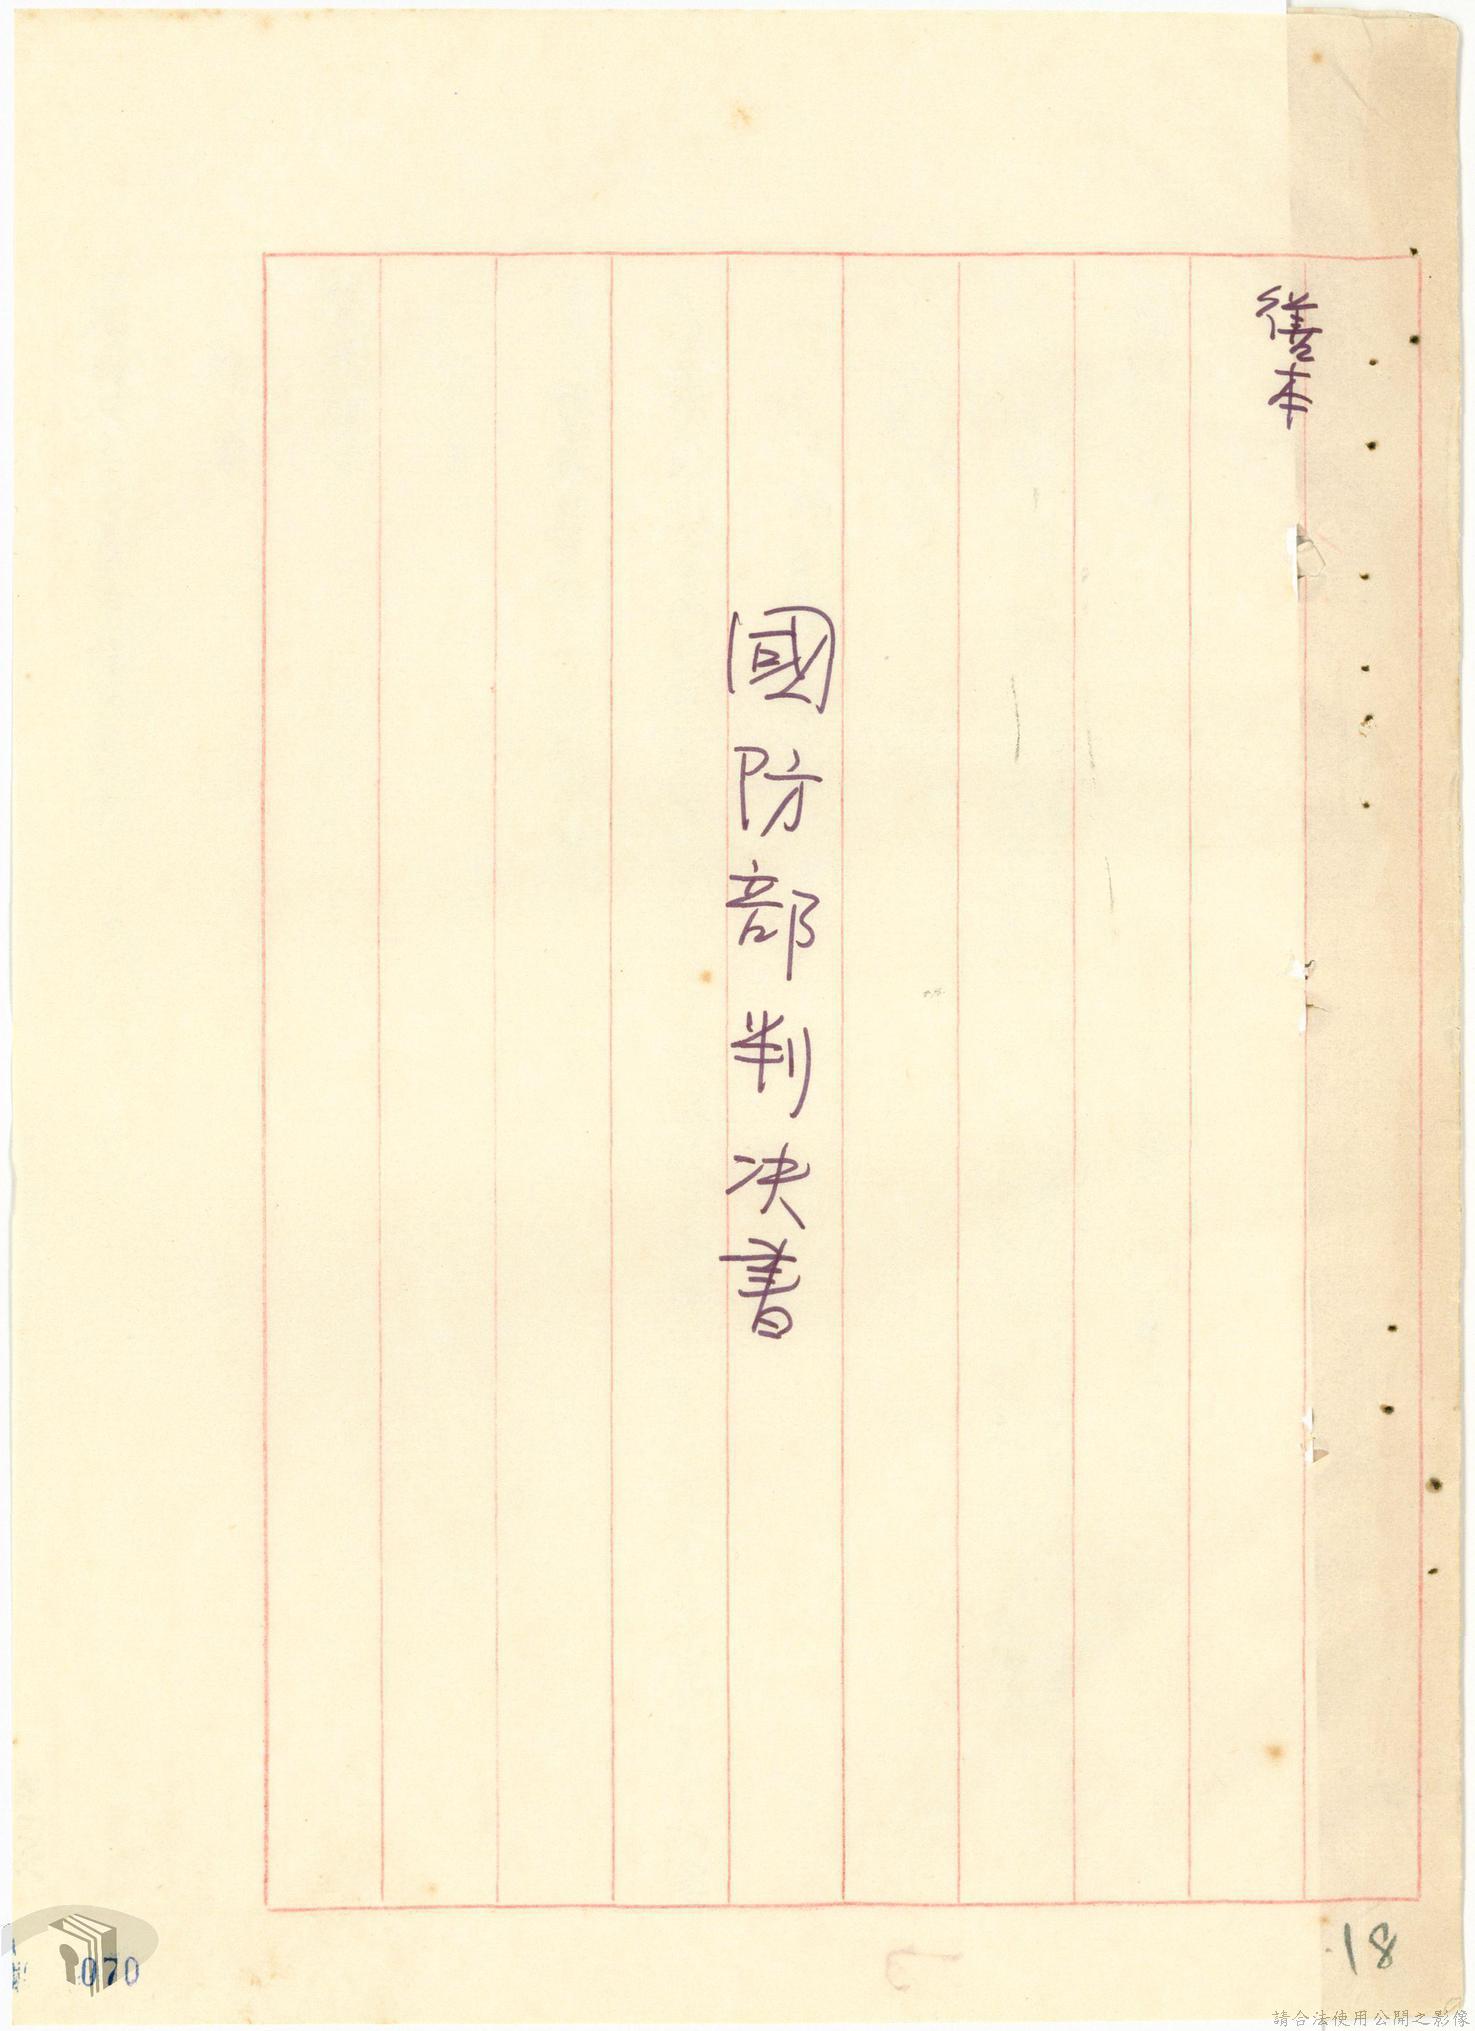 繕本
國防部判决書
18
070
請合法使用公開之影像